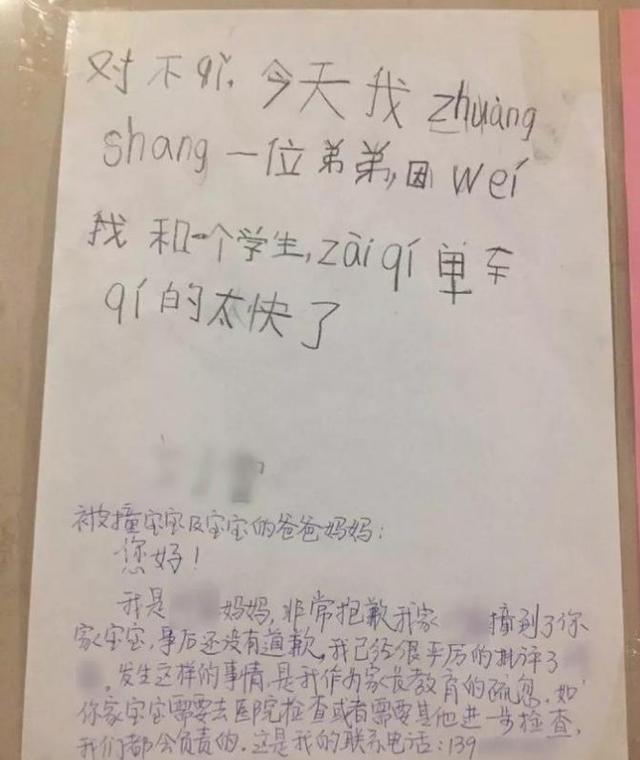 对不qǐ,今天我zhuàng
shang一位弟弟,因wéi
我和一个学生,zài qí单车
qí的太快了
被撞宝宝及宝宝的爸爸妈妈:
您好!
我是 妈妈,非常抱歉我家 撞到了你
家宝宝,事后还没有道歉,我已经很严厉的批评了
,发生这样的事情,是我作为家长教育的疏忽,如
你家宝宝需要去医院检查或者需要其他进一步检查,
我们都会负责的.这是我的联系电话:139